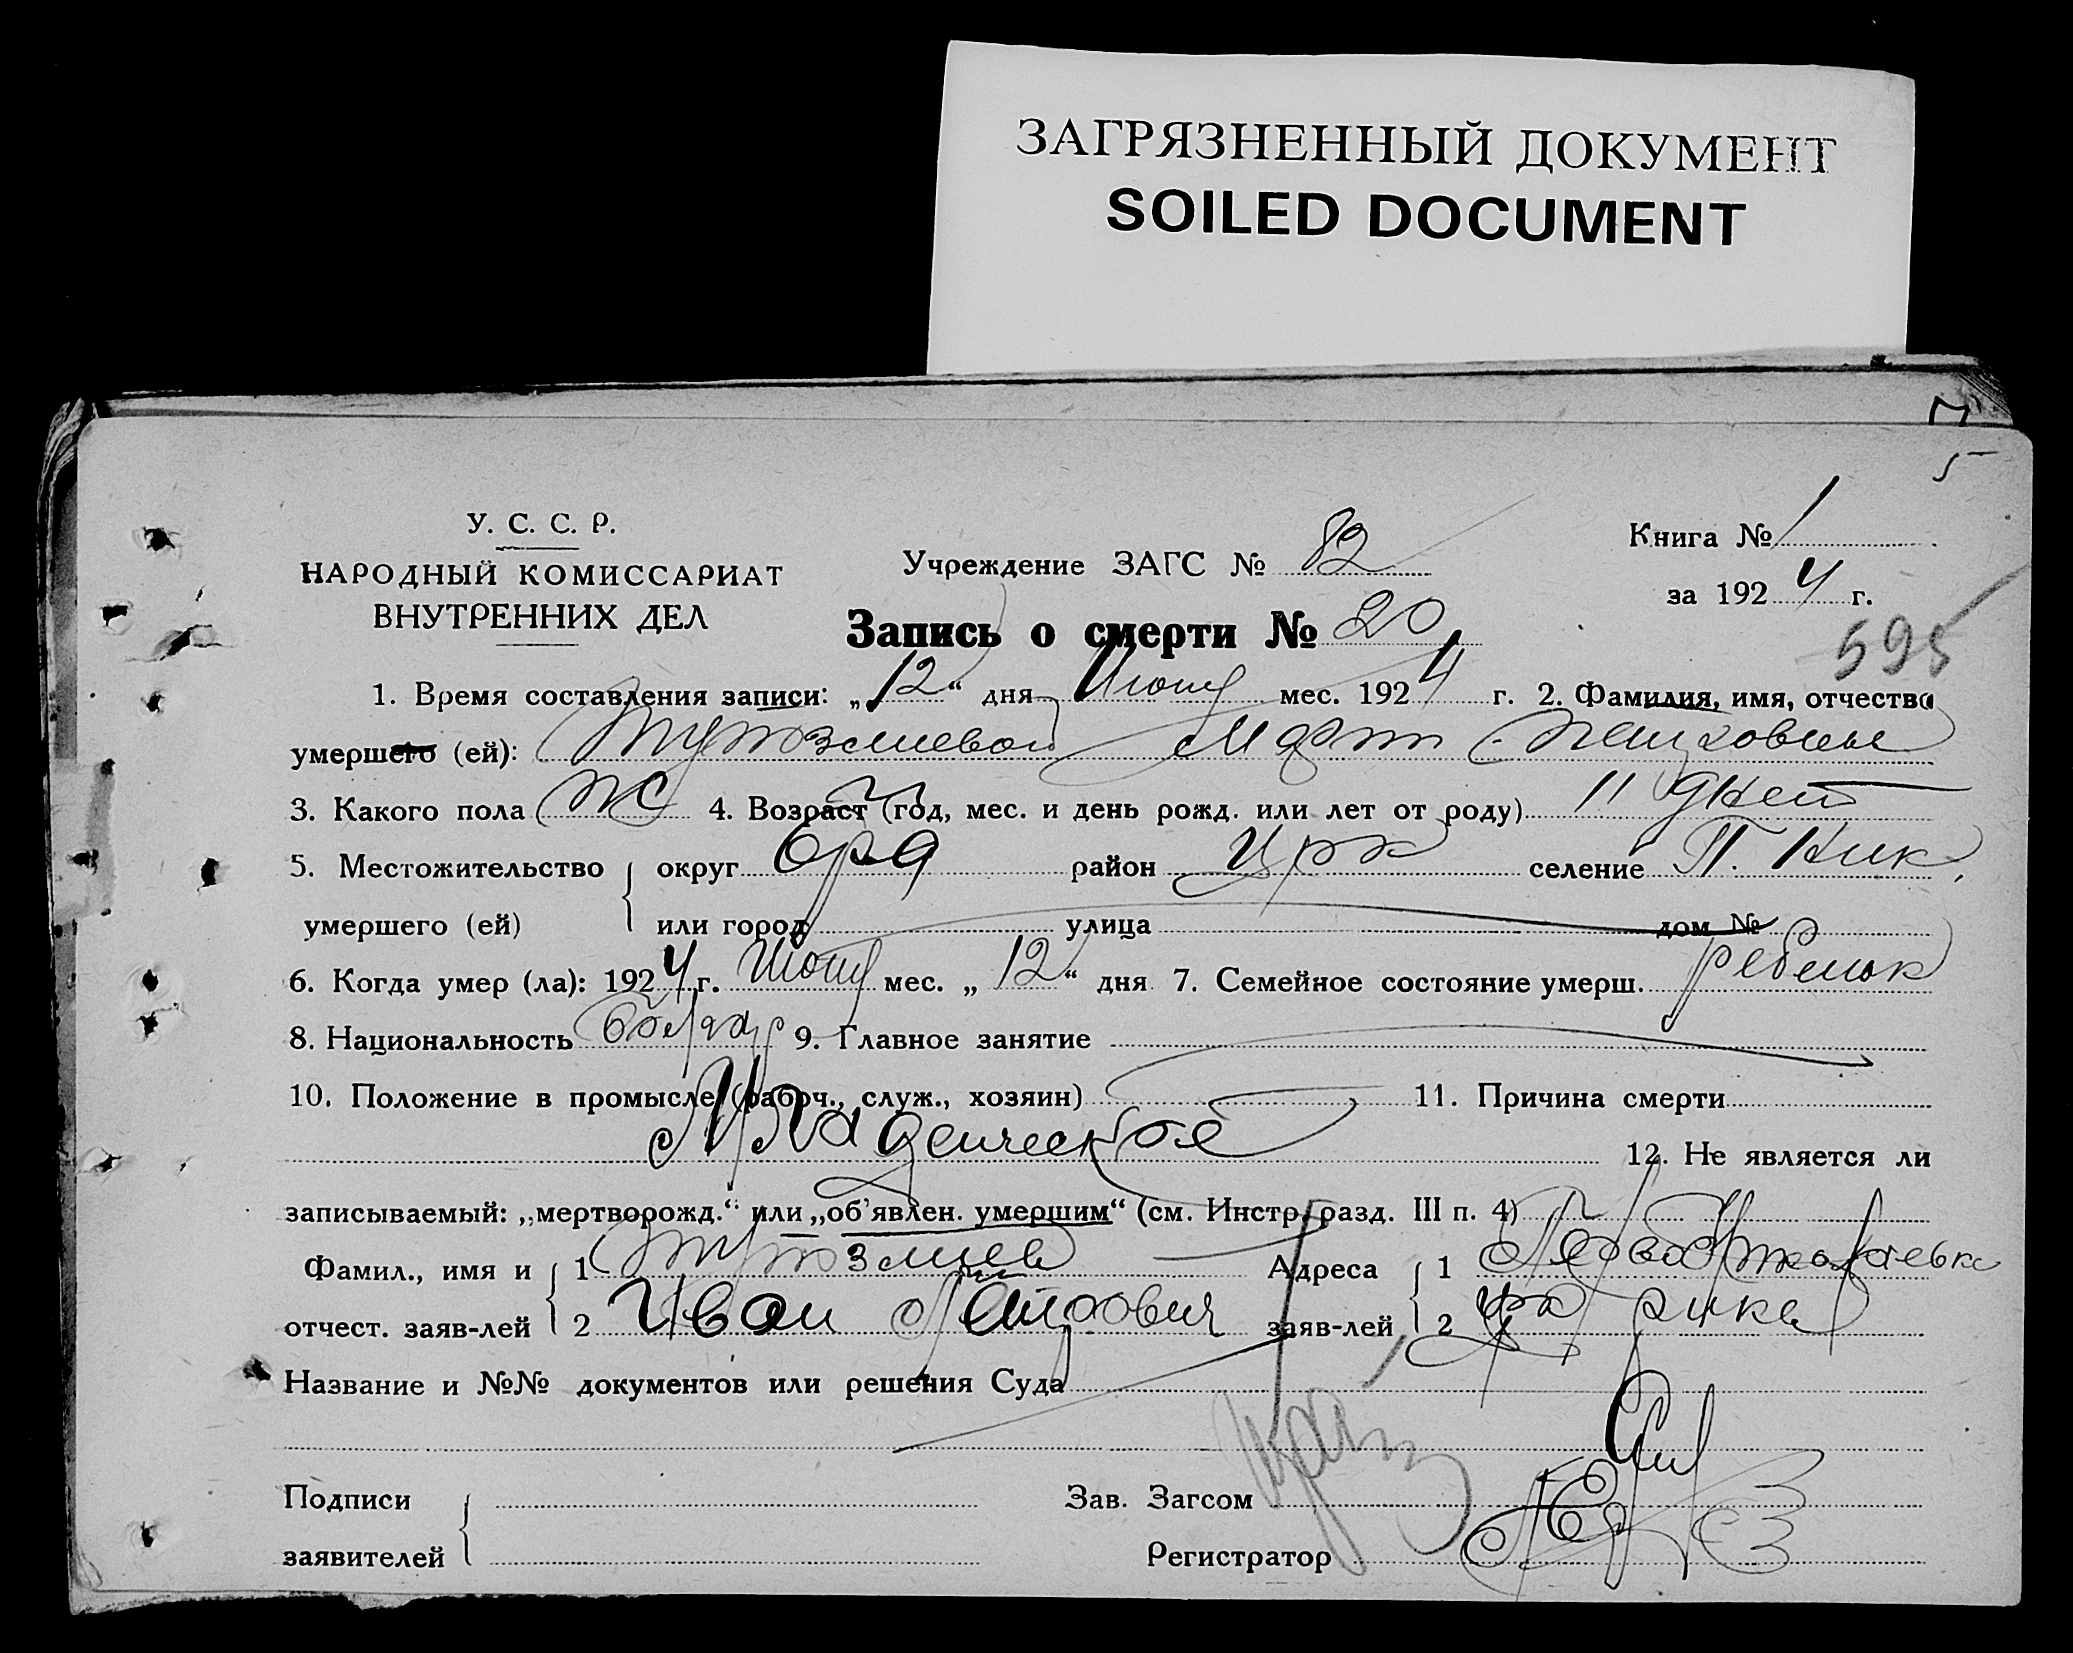 ЗАГРЯЗНЕННЫЙ ДОКУМЕНТ
SOILED DOCUMENT
5
У. С. С. Р.
НАРОДНЫЙ КОМИССАРИАТ
ВНУТРЕННИХ ДЕЛ
Учреждение ЗАГС № 82
Книга № 1
за 1924 г.
Запись о смерти № 20
595
1. Время составления записи: „12“ дня Июня мес. 1924 г. 2. Фамилия, имя, отчество
умершего (ей):
3. Какого пола Ж 4. Возраст (год, мес. и день рожд. или лет от роду) 11
5. Местожительство округ район селение П. Ник.
умершего (ей) или город улица дом №
6. Когда умер (ла): 1924 г. Июня мес. „12“ дня 7. Семейное состояние умерш. ребенок
8. Национальность 9. Главное занятие
10. Положение в промысле (рабоч., служ., хозяин) 11. Причина смерти
Младенческое 12. Не является ли
записываемый: „мертворожд.“ или „об'явлен. умершим“ (см. Инстр. разд. III п. 4)
Фамил., имя и 1 Адреса 1
отчест. заяв-лей 2 Иван Петрович заяв-лей 2
Название и №№ документов или решения Суда
Подписи Зав. Загсом
заявителей Регистратор